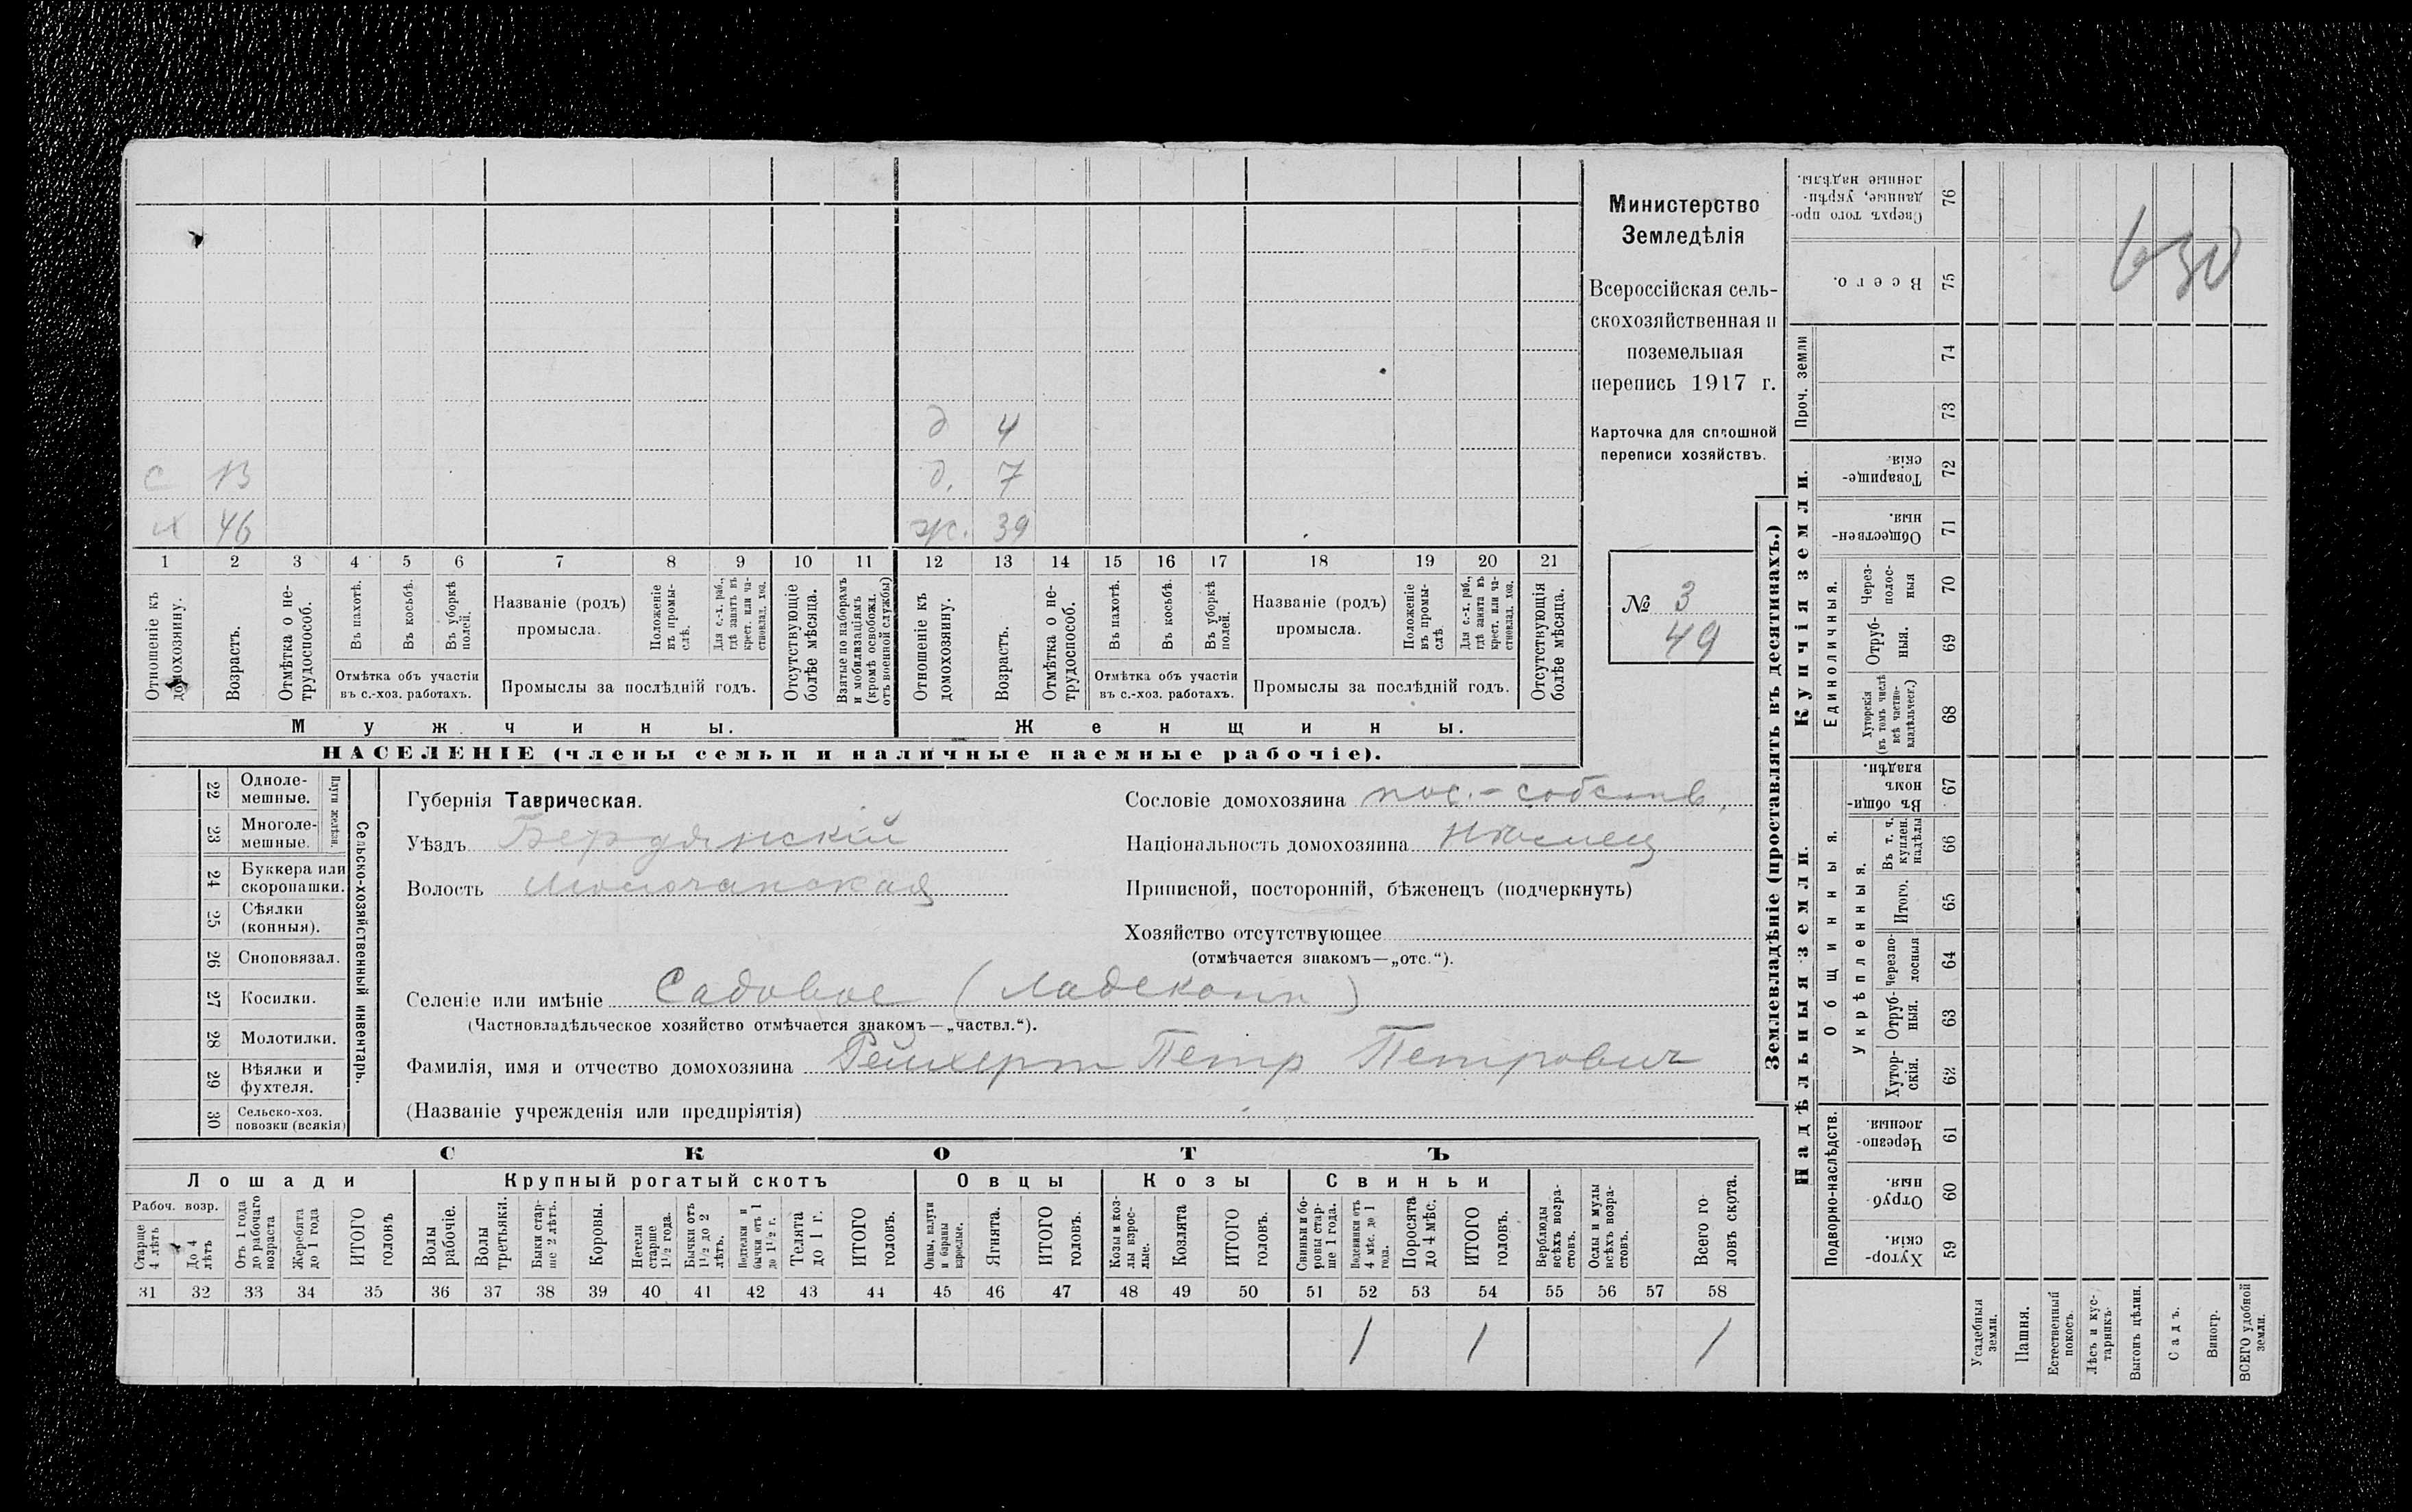 Министерство
Земледѣлія
Всероссійская сель-
скохозяйственная и
поземельная
перепись 1917 г.
Карточка для сплошной
переписи хозяйствъ.
№ 3
49
630
д 4
с 13 д. 7
х 46 ж. 39
1 2 3 4 5 6 7 8 9 10 11 12 13 14 15 16 17 18 19 20 21
Отношеніе къ домохозяину.
Возрастъ.
Отмѣтка о не-трудоспособ.
Въ пахотѣ.
Въ косьбѣ.
Въ уборкѣ полей.
Отмѣтка объ участіи
въ с.-хоз. работахъ.
Названіе (родъ)
промысла.
Положеніе въ промы-слѣ.
Для с.-х. раб., гдѣ занятъ въ крест. или ча-стновлад. хоз.
Промыслы за послѣдній годъ.
Отсутствующіе болѣе мѣсяца.
Взятые по наборамъ и мобилизаціямъ (кромѣ освобожд. отъ военной службы)
Отношеніе къ домохозяину.
Возрастъ.
Отмѣтка о не-трудоспособ.
Въ пахотѣ.
Въ косьбѣ.
Въ уборкѣ полей.
Отмѣтка объ участіи
въ с.-хоз. работахъ.
Названіе (родъ)
промысла.
Положеніе въ промы-слѣ
Для с.-х. раб., гдѣ занята въ крест. или ча-стновлад. хоз.
Промыслы за послѣдній годъ.
Отсутствующія болѣе мѣсяца.
Мужчины. Женщины.
НАСЕЛЕНІЕ (члены семьи и наличные наемные рабочіе).
22 Одноле-мешные.
23 Многоле-мешные.
Плуги желѣзн.
24 Буккера или скоропашки.
25 Сѣялки (конныя).
26 Сноповязал.
27 Косилки.
28 Молотилки.
29 Вѣялки и фухтеля.
30 Сельско-хоз. повозки (всякія)
Сельско-хозяйственный инвентарь.
Губернія Таврическая.
Уѣздъ Бердянскій
Волость Молочанская
Сословіе домохозяина пос.-собств.
Національность домохозяина Нѣмец
Приписной, посторонній, бѣженецъ (подчеркнуть)
Хозяйство отсутствующее
(отмѣчается знакомъ—„отс.“).
Селеніе или имѣніе Садовое (Ладекопп)
(Частновладѣльческое хозяйство отмѣчается знакомъ—„частвл.“).
Фамилія, имя и отчество домохозяина Реймерт Петр Петрович
(Названіе учрежденія или предпріятія)
СКОТЪ
Лошади Крупный рогатый скотъ Овцы Козы Свиньи
Рабоч. возр.
Старше 4 лѣтъ
До 4 лѣтъ
Отъ 1 года до рабочаго возраста
Жеребята до 1 года
ИТОГО головъ
Волы рабочіе.
Волы третьяки.
Быки стар-ше 2 лѣтъ.
Коровы.
Нетели старше 1½ года.
Бычки отъ 1½ до 2 лѣтъ.
Подтелки и бычки отъ 1 до 1½ г.
Телята до 1 г.
ИТОГО головъ.
Овцы, валухи и бараны взрослые.
Ягнята.
ИТОГО головъ.
Козы и коз-лы взрос-лые.
Козлята
ИТОГО головъ.
Свиньи и бо-ровы стар-ше 1 года.
Подсвинки отъ 4 мѣс. до 1 года.
Поросята до 4 мѣс.
ИТОГО головъ.
Верблюды всѣхъ возра-стовъ.
Ослы и мулы всѣхъ возра-стовъ.
Всего го-ловъ скота.
31 32 33 34 35 36 37 38 39 40 41 42 43 44 45 46 47 48 49 50 51 52 53 54 55 56 57 58
1 1 1
Землевладѣніе (проставлять въ десятинахъ.)
Купчія земли.
Надѣльныя земли.
Сверхъ того про-данные, укрѣп-ленные надѣлы. 76
Всего. 75
Проч. земли
74
73
Товарище-скія. 72
Обществен-ныя. 71
Единоличныя.
Через-полос-ныя 70
Отруб-ныя. 69
Хуторскія (въ томъ числѣ всѣ частно-владѣльческ.) 68
Общинныя.
Въ общи-номъ владѣн. 67
Укрѣпленныя.
Въ т. ч. куплен. надѣлы 66
Итого. 65
Черезпо-лосныя 64
Отруб-ныя. 63
Хутор-скія. 62
Подворно-наслѣдств.
Черезпо-лосныя. 61
Отруб-ныя. 60
Хутор-скія. 59
Усадебныя земли.
Пашня.
Естественный покосъ.
Лѣсъ и кус-тарникъ.
Выгонъ цѣлин.
Садъ.
Виногр.
ВСЕГО удобной земли.